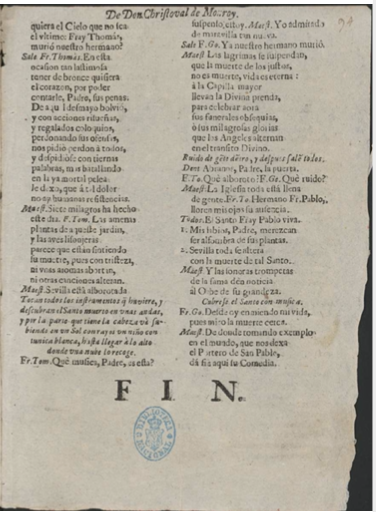 De Don Christoval de Monroy.
quiera el Cielo que sea
el vltimo: Fray Thomàs,
murió nuestro hermano?
Sale Fr. Thomàs. En esta
ocasion tan lastimosa
tener de bronce quisiera
el corazon, por poder
contarle, Padre, sus penas.
De aqui desmayo bolviò,
y con acciones risueñas,
y regalados coloquios,
perdonando sus ofensas,
nos pidió perdon à todos,
y despidiòse con tiernas
palabras, mas batallando
en la ya mortal pelea
le dexo, que à tal dolor
no ay humanas resistencias.
Maest. Siete milagros ha hecho
este dia. F. Tom. Las amenas
plantas de aqueste jardin,
y las aves lisonjeras
parece que estàn sintiendo
su muerte, pues con tristeza,
ni vnas aromas abortan,
ni otras canciones alteran.
Maest. Sevilla està alborotada.
Tocan todos los instrumentos q̃ huviere, y
descubran el Santo muerto en vnas andas,
y por la parte que tiene la cabeza và su-
biendo en vn Sol con rayos vn niño con
tunica blanca, hasta llegar à lo alto
donde vna nube lo recoge.
Fr. Tom. Què musica, Padre, es esta?
suspenso estoy. Maest. Yo admirado
de maravilla tan nueva.
Sale F. Go. Ya nuestro hermano muriò.
Maest. Las lagrimas se suspendan,
que la muerte de los justos,
no es muerte, vida es eterna:
à la Capilla mayor
llevan la Divina prenda,
para celebrar aora
sus funerales obsequias,
ò sus milagrosas glorias
que los Angeles alternan
en el transito Divino.
Ruido de gẽte dẽtro, y despues salẽ todos.
Dent. Abrannos, Padre, la puerta.
F. To. Què alboroto? F. Go. Què ruido?
Maest. La Iglesia toda està llena
de gente. Fr. To. Hermano Fr. Pablo,
lloren mis ojos su ausencia.
Todos. El Santo Fray Pablo viva.
1. Mis labios, Padre, merezcan
ser alfombra de sus plantas.
2. Sevilla toda se altera
con la muerte de tal Santo.
Maest. Y las sonoras trompetas
de la fama dèn noticia
al Orbe de su grandeza.
Cubrese el Santo con musica.
Fr. Go. Desde oy enmiendo mi vida,
pues miro la muerte cerca.
Maest. De donde tomando exemplo
en el mundo, que nos dexa
el Portero de San Pablo,
dà fin aqui su Comedia.
FIN.
BIBLIOTECA
NACIONAL